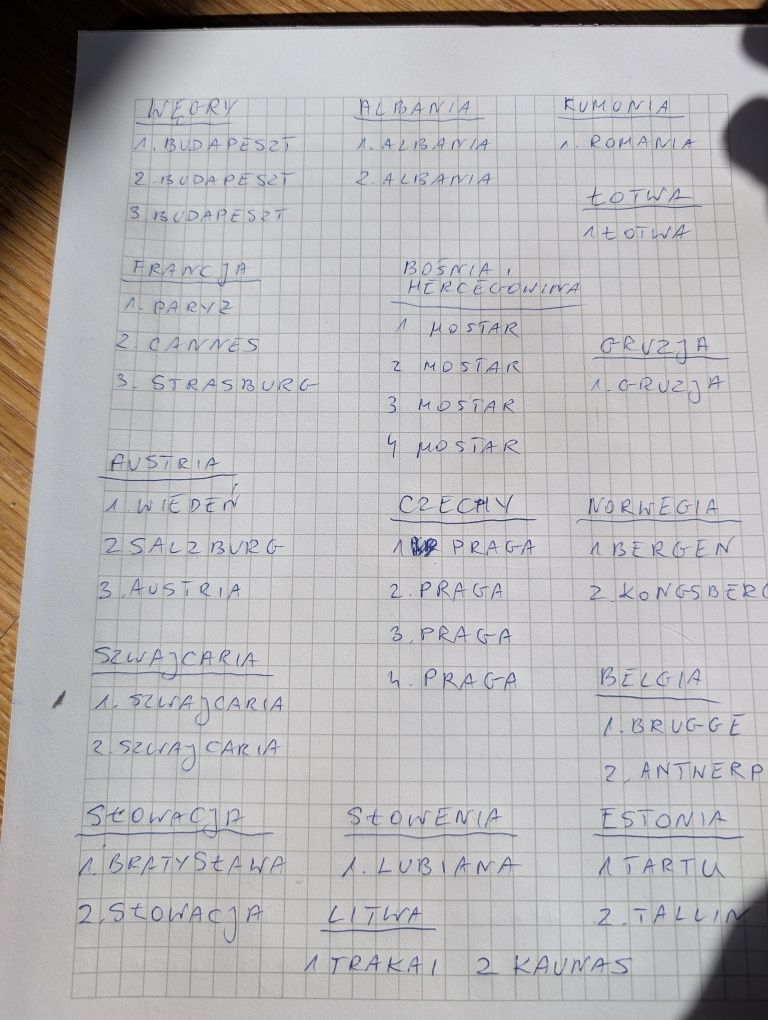 WĘGRY
1. BUDAPESZT
2. BUDAPESZT
3 BUDAPESZT
FRANCJA
1. PARYZ
2. CANNES
3. STRASBURG
AUSTRIA
1. WIEDEŃ
2 SALZBURG
3. AUSTRIA
SZWAJCARIA
1. SZWAJCARIA
2. SZWAJCARIA
SŁOWACJA
1. BRATYSŁAWA
2. SŁOWACJA
ALBANIA
1. ALBANIA
2. ALBANIA
BOŚNIA I
HERCEGOWINA
1 MOSTAR
2 MOSTAR
3 MOSTAR
4 MOSTAR
CZECHY
1 PRAGA
2. PRAGA
3. PRAGA
4. PRAGA
SŁOWENIA
1. LUBIANA
LITWA
1 TRAKAI 2 KAUNAS
RUMONIA
1. ROMANIA
ŁOTWA
1 ŁOTWA
GRUZJA
1. GRUZJA
NORWEGIA
1 BERGEN
2. KONGSBERG
BELGIA
1. BRUGGE
2. ANTWERP
ESTONIA
1 TARTU
2. TALLIN